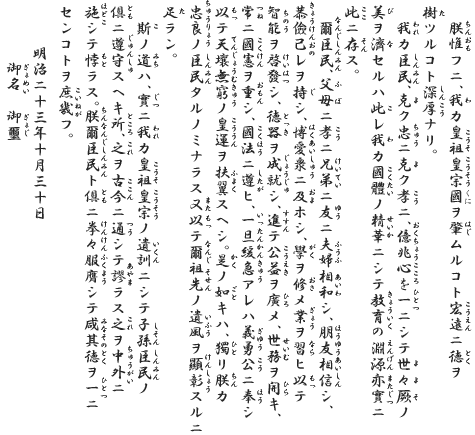 朕惟フニ、我カ皇祖皇宗國ヲ肇ムルコト宏遠ニ、德ヲ
樹ツルコト深厚ナリ。
我カ臣民、克ク忠ニ克ク孝ニ、億兆心を一ニシテ世々厥ノ
美ヲ濟セルハ此レ我カ國體ノ精華ニシテ教育の淵源亦實ニ
此ニ存ス。
爾臣民、父母ニ孝ニ兄弟ニ友ニ夫婦相和シ、朋友相信シ、
恭儉己レヲ持シ、博愛衆ニ及ホシ、學ヲ修メ業ヲ習ヒ以テ
智能ヲ啓發シ、德器ヲ成就シ、進テ公益ヲ廣メ、世務ヲ開キ、
常ニ國憲を重シ、國法ニ遵ヒ、一旦緩急アレハ義勇公ニ奉シ
以テ天壤無窮ノ皇運ヲ扶翼スヘシ。是ノ如キハ、獨リ朕カ
忠良ノ臣民タルノミナラス又以テ爾祖先ノ遺風ヲ顯彰スルニ
足ラン。
斯ノ道ハ、實ニ我カ皇祖皇宗ノ遺訓ニシテ子孫臣民ノ
俱ニ遵守スヘキ所、之ヲ古今ニ通シテ謬ラス之ヲ中外ニ
施シテ悖ラス。朕爾臣民ト俱ニ拳々服膺シテ咸其德ヲ一ニ
センコトヲ庶幾フ。
明治二十三年十月三十日
御名 御璽